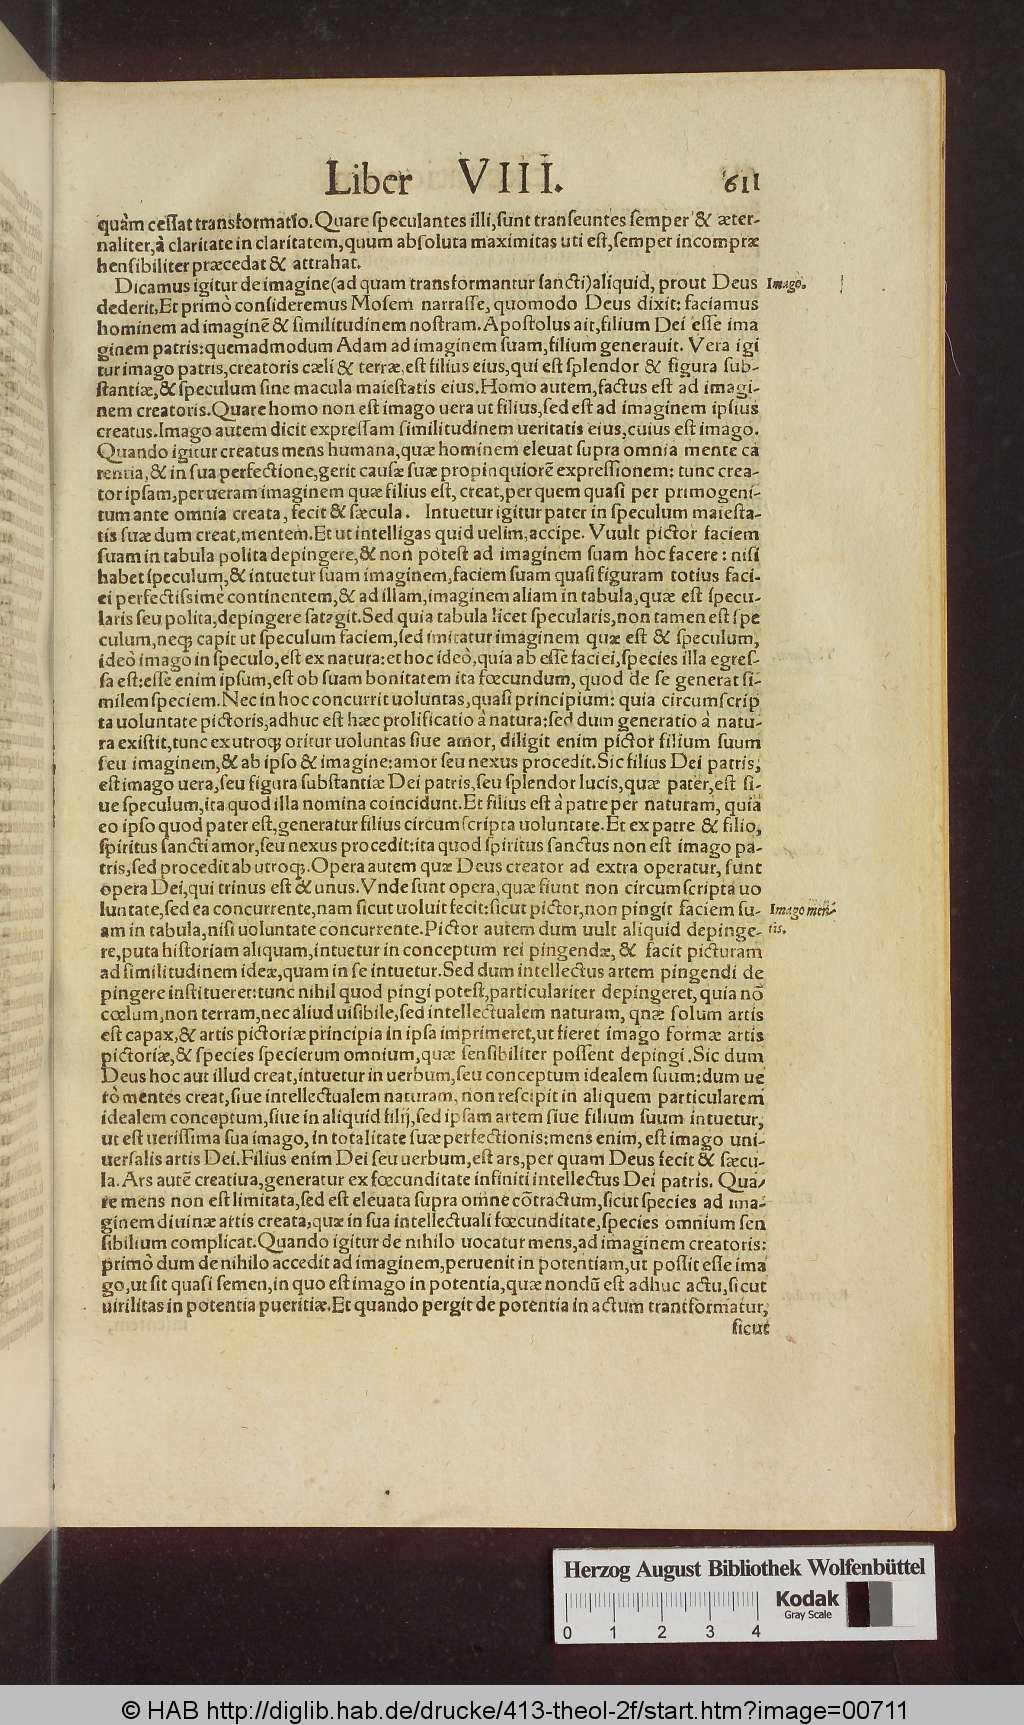 Liber VIII. 611
quàm ceſſat transformatio. Quare ſpeculantes illi, ſunt tranſeuntes ſemper & æter-
naliter, à claritate in claritatem, quum abſoluta maximitas uti eſt, ſemper incompræ
henſibiliter præcedat & attrahat.
Dicamus igitur de imagine (ad quam transformantur ſancti) aliquid, prout Deus
Imago.
dederit. Et primò conſideremus Moſem narraſſe, quomodo Deus dixit: faciamus
hominem ad imaginẽ & ſimilitudinem noſtram. Apoſtolus ait, filium Dei eſſe ima
ginem patris: quemadmodum Adam ad imaginem ſuam, filium generauit. Vera igi
tur imago patris, creatoris cæli & terræ, eſt filius eius, qui eſt ſplendor & figura ſub-
ſtantiæ, & ſpeculum ſine macula maieſtatis eius. Homo autem, factus eſt ad imagi-
nem creatoris. Quare homo non eſt imago uera ut filius, ſed eſt ad imaginem ipſius
creatus. Imago autem dicit expreſſam ſimilitudinem ueritatis eius, cuius eſt imago.
Quando igitur creatus mens humana, quæ hominem eleuat ſupra omnia mente ca
rentia, & in ſua perfectione, gerit cauſæ ſuæ propinquiorẽ expreſſionem: tunc crea-
tor ipſam, per ueram imaginem quæ filius eſt, creat, per quem quaſi per primogeni-
tum ante omnia creata, fecit & ſæcula. Intuetur igitur pater in ſpeculum maieſta-
tis ſuæ dum creat, mentem. Et ut intelligas quid uelim, accipe. Vuult pictor faciem
ſuam in tabula polita depingere, & non poteſt ad imaginem ſuam hoc facere: niſi
habet ſpeculum, & intuetur ſuam imaginem, faciem ſuam quaſi figuram totius faci-
ei perfectiſsimè continentem, & ad illam, imaginem aliam in tabula, quæ eſt ſpecu-
laris ſeu polita, depingere ſatagit. Sed quia tabula licet ſpecularis, non tamen eſt ſpe
culum, neq; capit ut ſpeculum faciem, ſed imitatur imaginem quæ eſt & ſpeculum,
ideò imago in ſpeculo, eſt ex natura: et hoc ideò, quia ab eſſe faciei, ſpecies illa egreſ-
ſa eſt: eſſe enim ipſum, eſt ob ſuam bonitatem ita fœcundum, quod de ſe generat ſi-
milem ſpeciem. Nec in hoc concurrit uoluntas, quaſi principium: quia circumſcrip
ta uoluntate pictoris, adhuc eſt hæc prolificatio à natura: ſed dum generatio à natu-
ra exiſtit, tunc ex utroq; oritur uoluntas ſiue amor, diligit enim pictor filium ſuum
ſeu imaginem, & ab ipſo & imagine: amor ſeu nexus procedit. Sic filius Dei patris,
eſt imago uera, ſeu figura ſubſtantiæ Dei patris, ſeu ſplendor lucis, quæ pater, eſt ſi-
ue ſpeculum, ita quod illa nomina coincidunt. Et filius eſt à patre per naturam, quia
eo ipſo quod pater eſt, generatur filius circumſcripta uoluntate. Et ex patre & filio,
ſpiritus ſancti amor, ſeu nexus procedit: ita quod ſpiritus ſanctus non eſt imago pa-
tris, ſed procedit ab utroq;. Opera autem quæ Deus creator ad extra operatur, ſunt
opera Dei, qui trinus eſt & unus. Vnde ſunt opera, quæ fiunt non circumſcripta uo
luntate, ſed ea concurrente, nam ſicut uoluit fecit: ſicut pictor, non pingit faciem ſu-
Imago men-
am in tabula, niſi uoluntate concurrente. Pictor autem dum uult aliquid depinge-
tis.
re, puta hiſtoriam aliquam, intuetur in conceptum rei pingendæ, & facit picturam
ad ſimilitudinem ideæ, quam in ſe intuetur. Sed dum intellectus artem pingendi de
pingere inſtitueret: tunc nihil quod pingi poteſt, particulariter depingeret, quia nõ
cœlum, non terram, nec aliud uiſibile, ſed intellectualem naturam, qnæ ſolum artis
eſt capax, & artis pictoriæ principia in ipſa imprimeret, ut fieret imago formæ artis
pictoriæ, & ſpecies ſpecierum omnium, quæ ſenſibiliter poſſent depingi. Sic dum
Deus hoc aut illud creat, intuetur in uerbum, ſeu conceptum idealem ſuum: dum ue
rò mentes creat, ſiue intellectualem naturam, non reſcipit in aliquem particularem
idealem conceptum, ſiue in aliquid filij, ſed ipſam artem ſiue filium ſuum intuetur,
ut eſt ueriſſima ſua imago, in totalitate ſuæ perfectionis: mens enim, eſt imago uni-
uerſalis artis Dei. Filius enim Dei ſeu uerbum, eſt ars, per quam Deus fecit & ſæcu-
la. Ars autẽ creatiua, generatur ex fœcunditate infiniti intellectus Dei patris. Qua-
re mens non eſt limitata, ſed eſt eleuata ſupra omne cõtractum, ſicut ſpecies ad ima-
ginem diuinæ artis creata, quæ in ſua intellectuali fœcunditate, ſpecies omnium ſen
ſibilium complicat. Quando igitur de nihilo uocatur mens, ad imaginem creatoris:
primò dum de nihilo accedit ad imaginem, peruenit in potentiam, ut poſſit eſſe ima
go, ut ſit quaſi ſemen, in quo eſt imago in potentia, quæ nondũ eſt adhuc actu, ſicut
uirilitas in potentia pueritiæ. Et quando pergit de potentia in actum tranſformatur,
ſicut
Herzog August Bibliothek Wolfenbüttel
Kodak
Gray Scale
0 1 2 3 4
© HAB http://diglib.hab.de/drucke/413-theol-2f/start.htm?image=00711